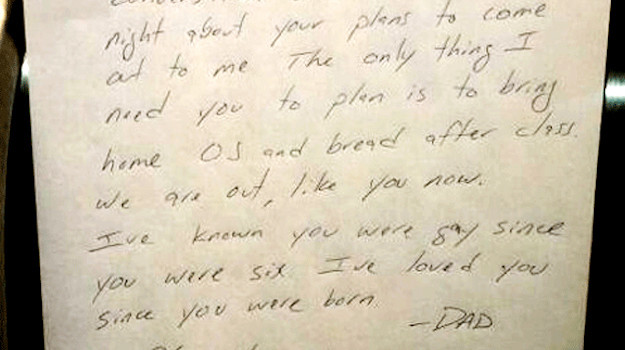 night about your plans to come
out to me The only thing I
need you to plan is to bring
home OJ and bread after class.
We are out, like you now.
I've known you were gay since
you were six. I've loved you
since you were born.
-DAD